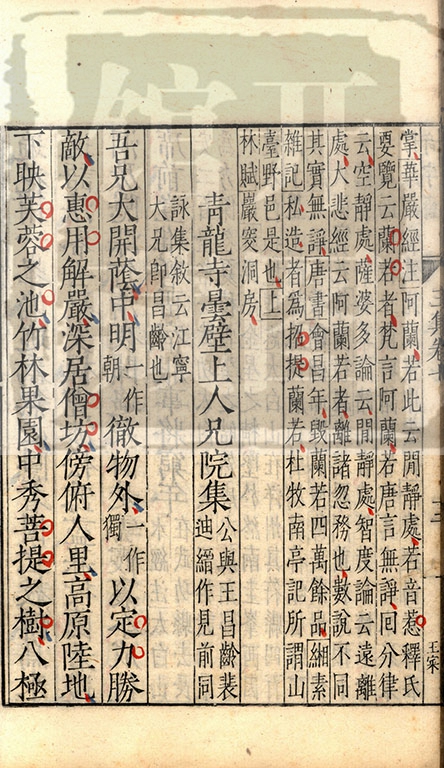 掌華嚴經注阿蘭若此云閒靜處若音惹釋氏
要覽云蘭若者梵言阿蘭若唐言無諍四分律
云空靜處薩婆多論云閒靜處智度論云遠離
處大悲經云阿蘭若者離諸忽務也數說不同
其實無諍唐書會昌年毀蘭若四萬餘品緗素
雜記私造者為招提蘭若杜牧南亭記所謂山
臺野邑是也上
林賦巖突洞房
青龍寺曇壁上人兄院集公與王昌齡裴
迪縉作見前同
詠集敘云江寧
大兄即昌齡也
吾兄大開蔭中明一作
朝徹物外一作
獨以定力勝
敵以惠用解嚴深居僧坊傍俯人里高原陸地
下映芙蓉之池竹林果園中秀菩提之樹八極
王宷